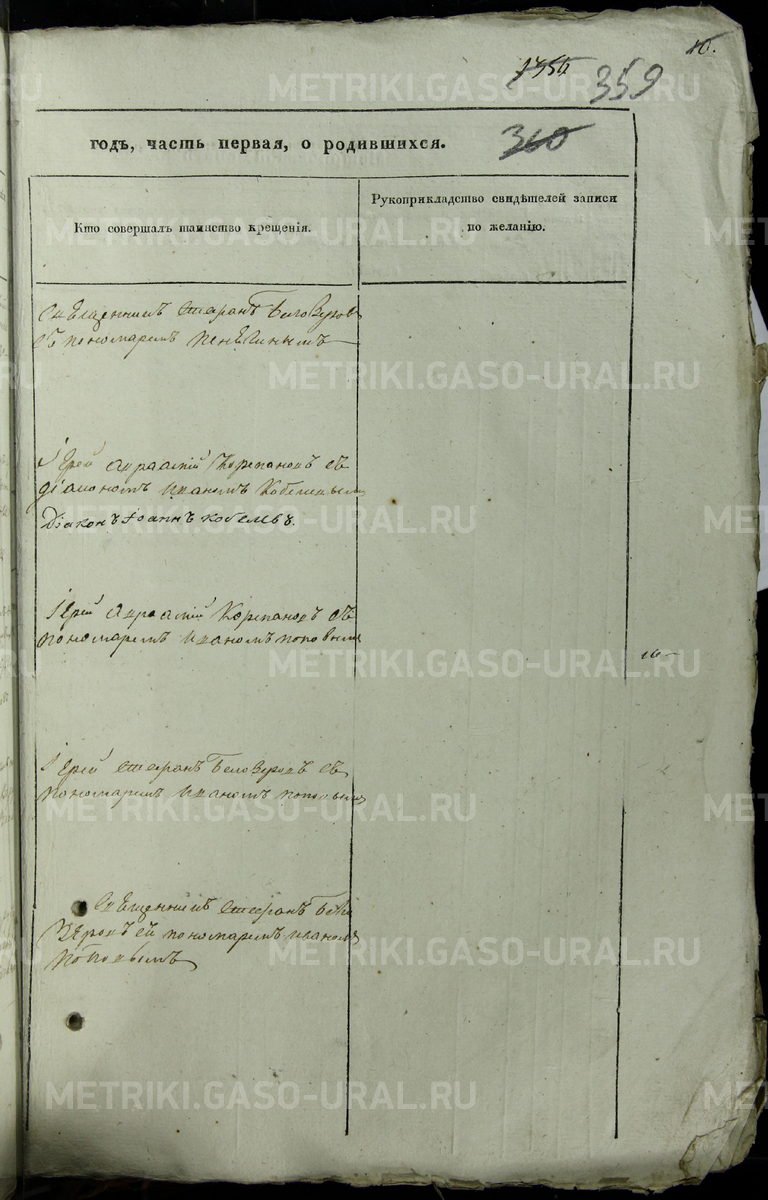 10.
359
360
годъ, часть первая, о родившихся.
Кто совершалъ таинство крещенія.
Рукоприкладство свидѣтелей записи
по желанію.
Священникъ Стефанъ Белозеровъ
съ пономаремъ Пенегинымъ
Іерей Авраамій Корепановъ съ
діакономъ Иваномъ Кобелевымъ
Діаконъ Іоаннъ Кобелевъ.
Іерей Авраамій Корепановъ съ
пономаремъ Иваномъ Поповымъ
Іерей Стефанъ Белозеровъ съ
пономаремъ Иваномъ Поповымъ
Священникъ Стефанъ Бело
зеровъ съ пономаремъ Иваномъ
Поповымъ
METRIKI.GASO-URAL.RU